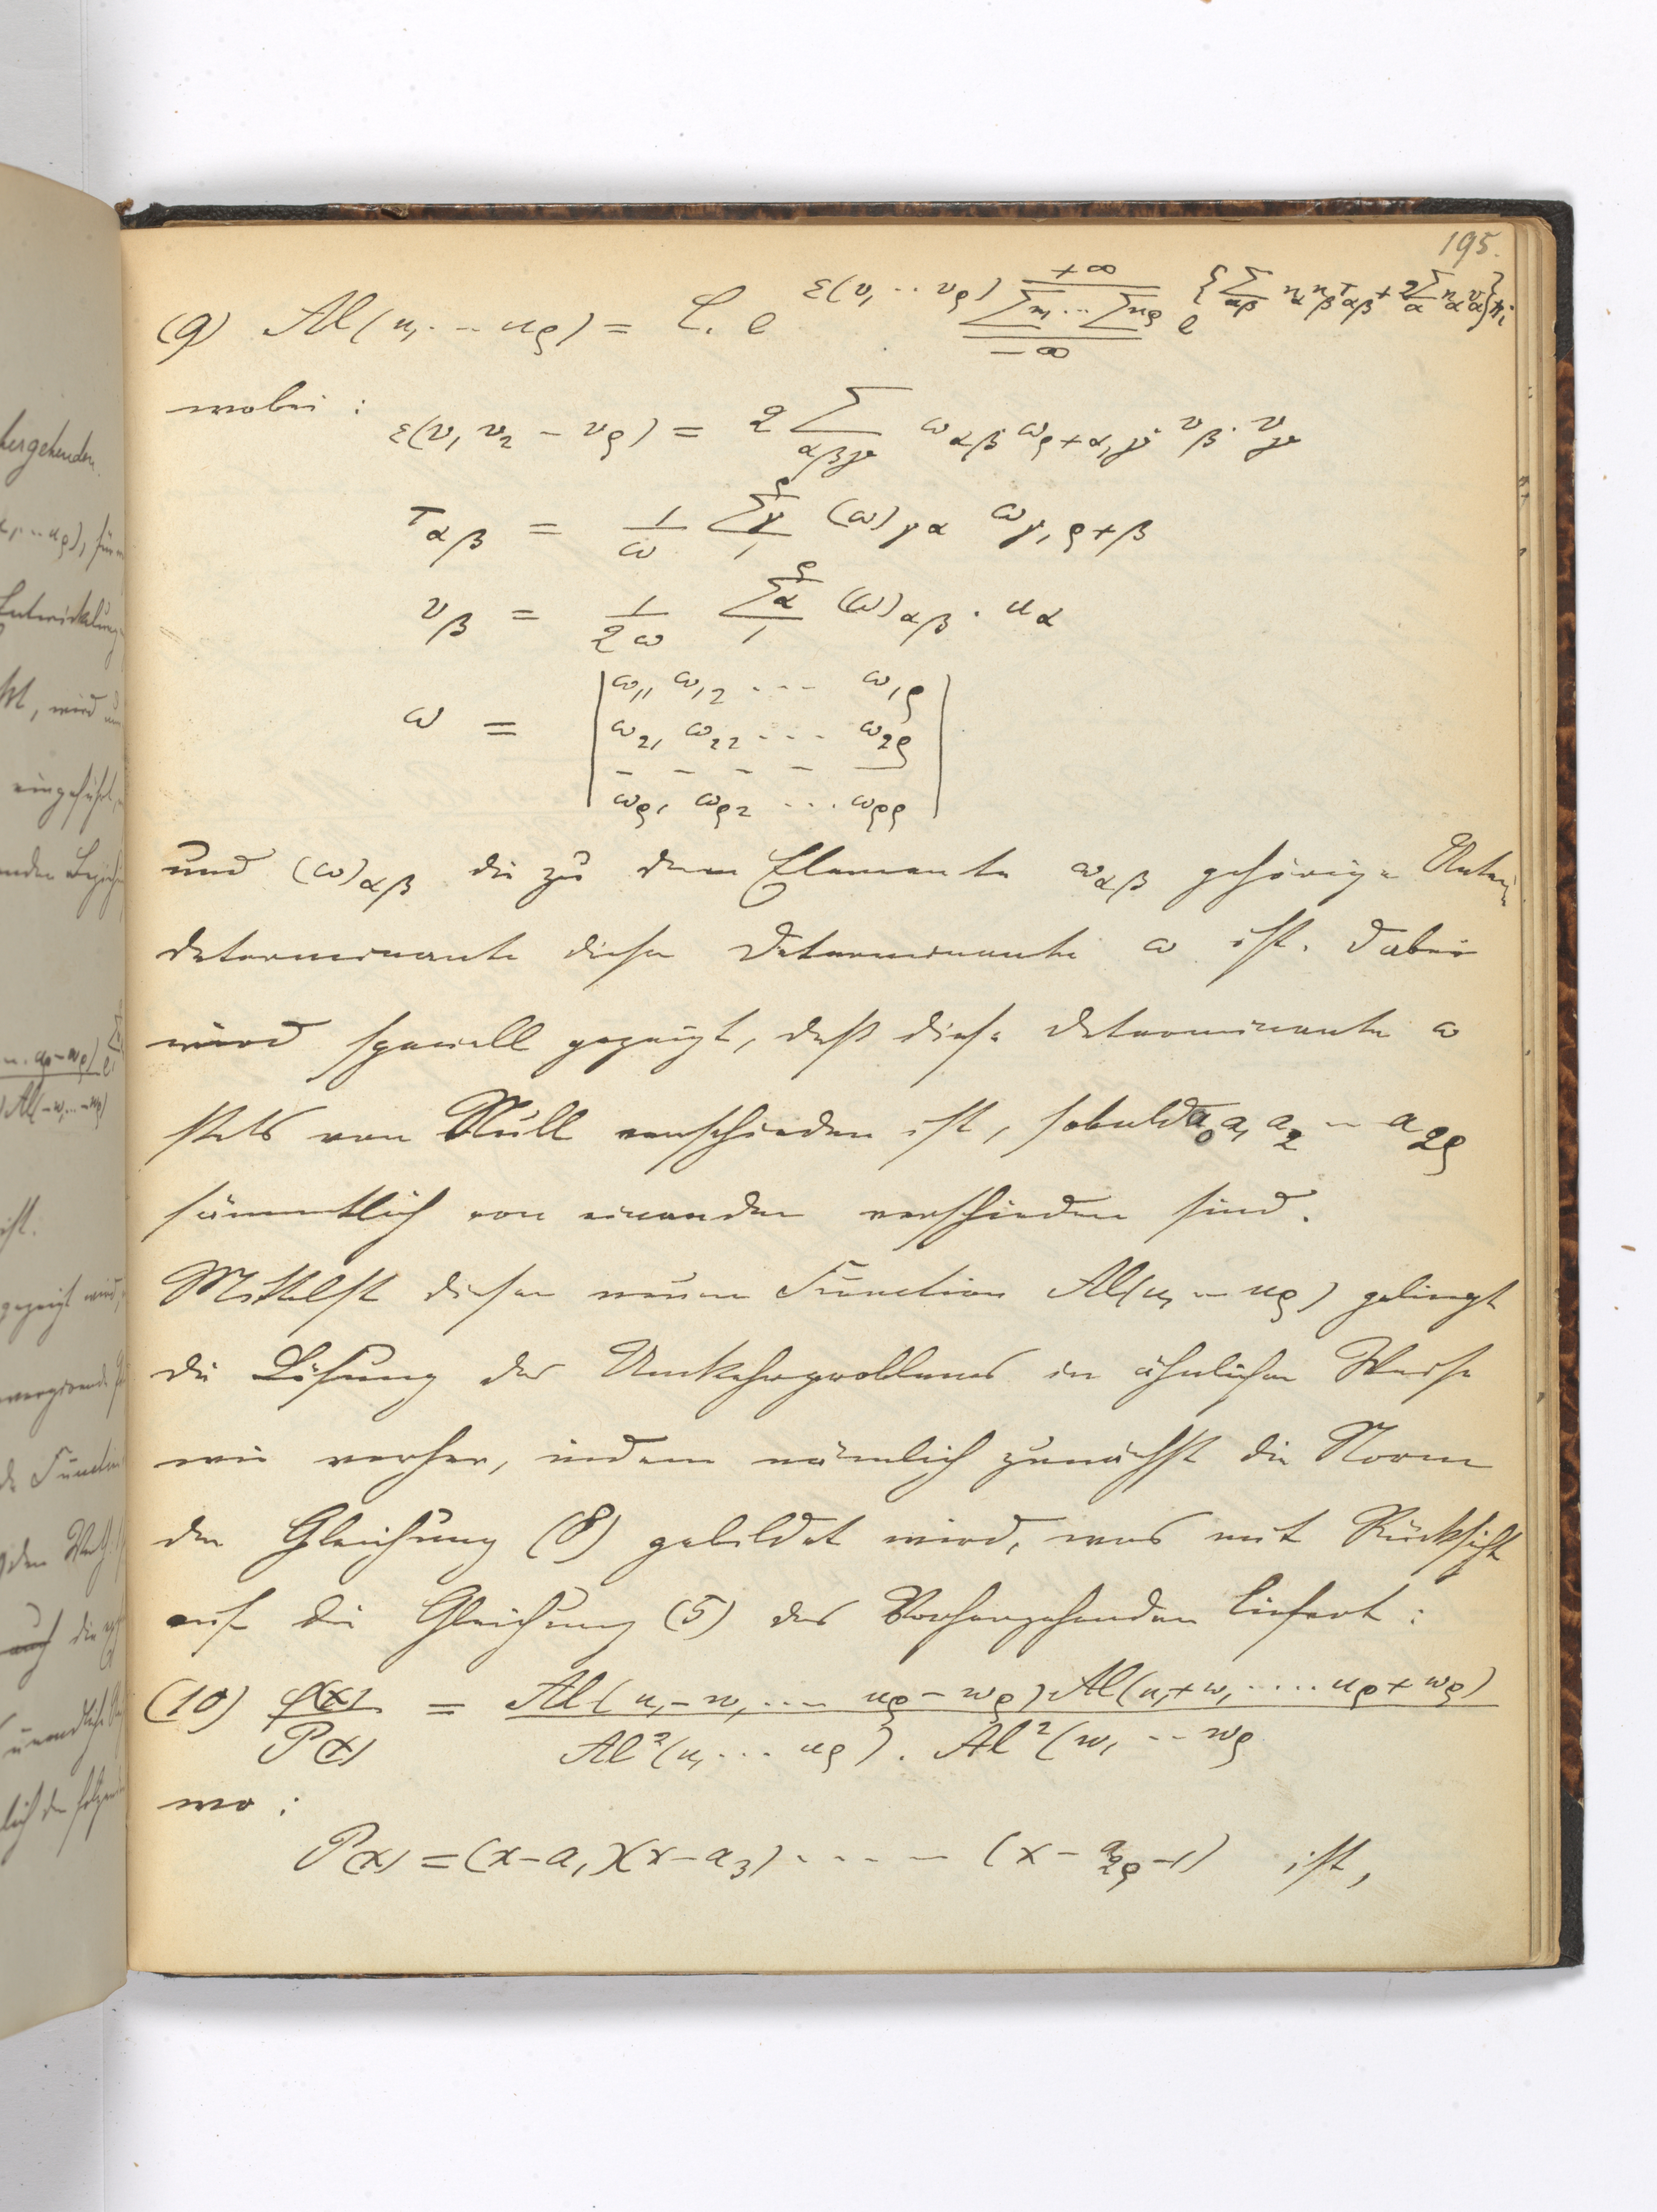 195.
(9) Al(u₁ .. u_ρ) = C. e^{ε(v₁ .. v_ρ)} \sum_{-∞}^{+∞} n₁ ... \sum n_ρ e^{\{\sum_{αβ} n_α n_β τ_{αβ} + 2\sum_α n_α v_α\}πi}
wobei :
ε(v₁ v₂ – v_ρ) = 2 \sum_{αβγ} ω_{αβ} ω_{ρ+α,γ} v_β . v_γ
τ_{αβ} = \frac{1}{ω} \sum_1^ρ γ (ω)_{γα} ω_{γ,ρ+β}
v_β = \frac{1}{2ω} \sum_1^ρ α (ω)_{αβ} . u_α
ω = | ω₁₁ ω₁₂ ... ω_{1ρ}
ω₂₁ ω₂₂ ... ω_{2ρ}
– – – – –
ω_{ρ1} ω_{ρ2} ... ω_{ρρ} |
und (ω)_{αβ} die zu dem Elemente ω_{αβ} gehörige Unter-
determinante dieser Determinante ω ist. Dabei
wird speciell gezeigt, daß diese Determinante ω
stets von Null verschieden ist, sobald a₀ a₁ a₂ – a_{2ρ}
sämmtlich von einander verschieden sind.
Mittelst dieser neuen Function Al(u₁ – u_ρ) gelingt
die Lösung des Umkehrproblemes in ähnlicher Weise
wie vorher, indem nämlich zunächst die Norm
der Gleichung (8) gebildet wird, was mit Rücksicht
auf die Gleichung (5) des Vorhergehenden liefert :
(10) \frac{φ(x)}{P(x)} = \frac{Al(u₁–w₁ .... u_ρ–w_ρ) Al(u₁+w₁ ..... u_ρ+w_ρ)}{Al²(u₁ ... u_ρ) . Al²(w₁ .. w_ρ}
wo :
P(x) = (x–a₁)(x–a₃) ..... (x–a_{2ρ–1}) ist,